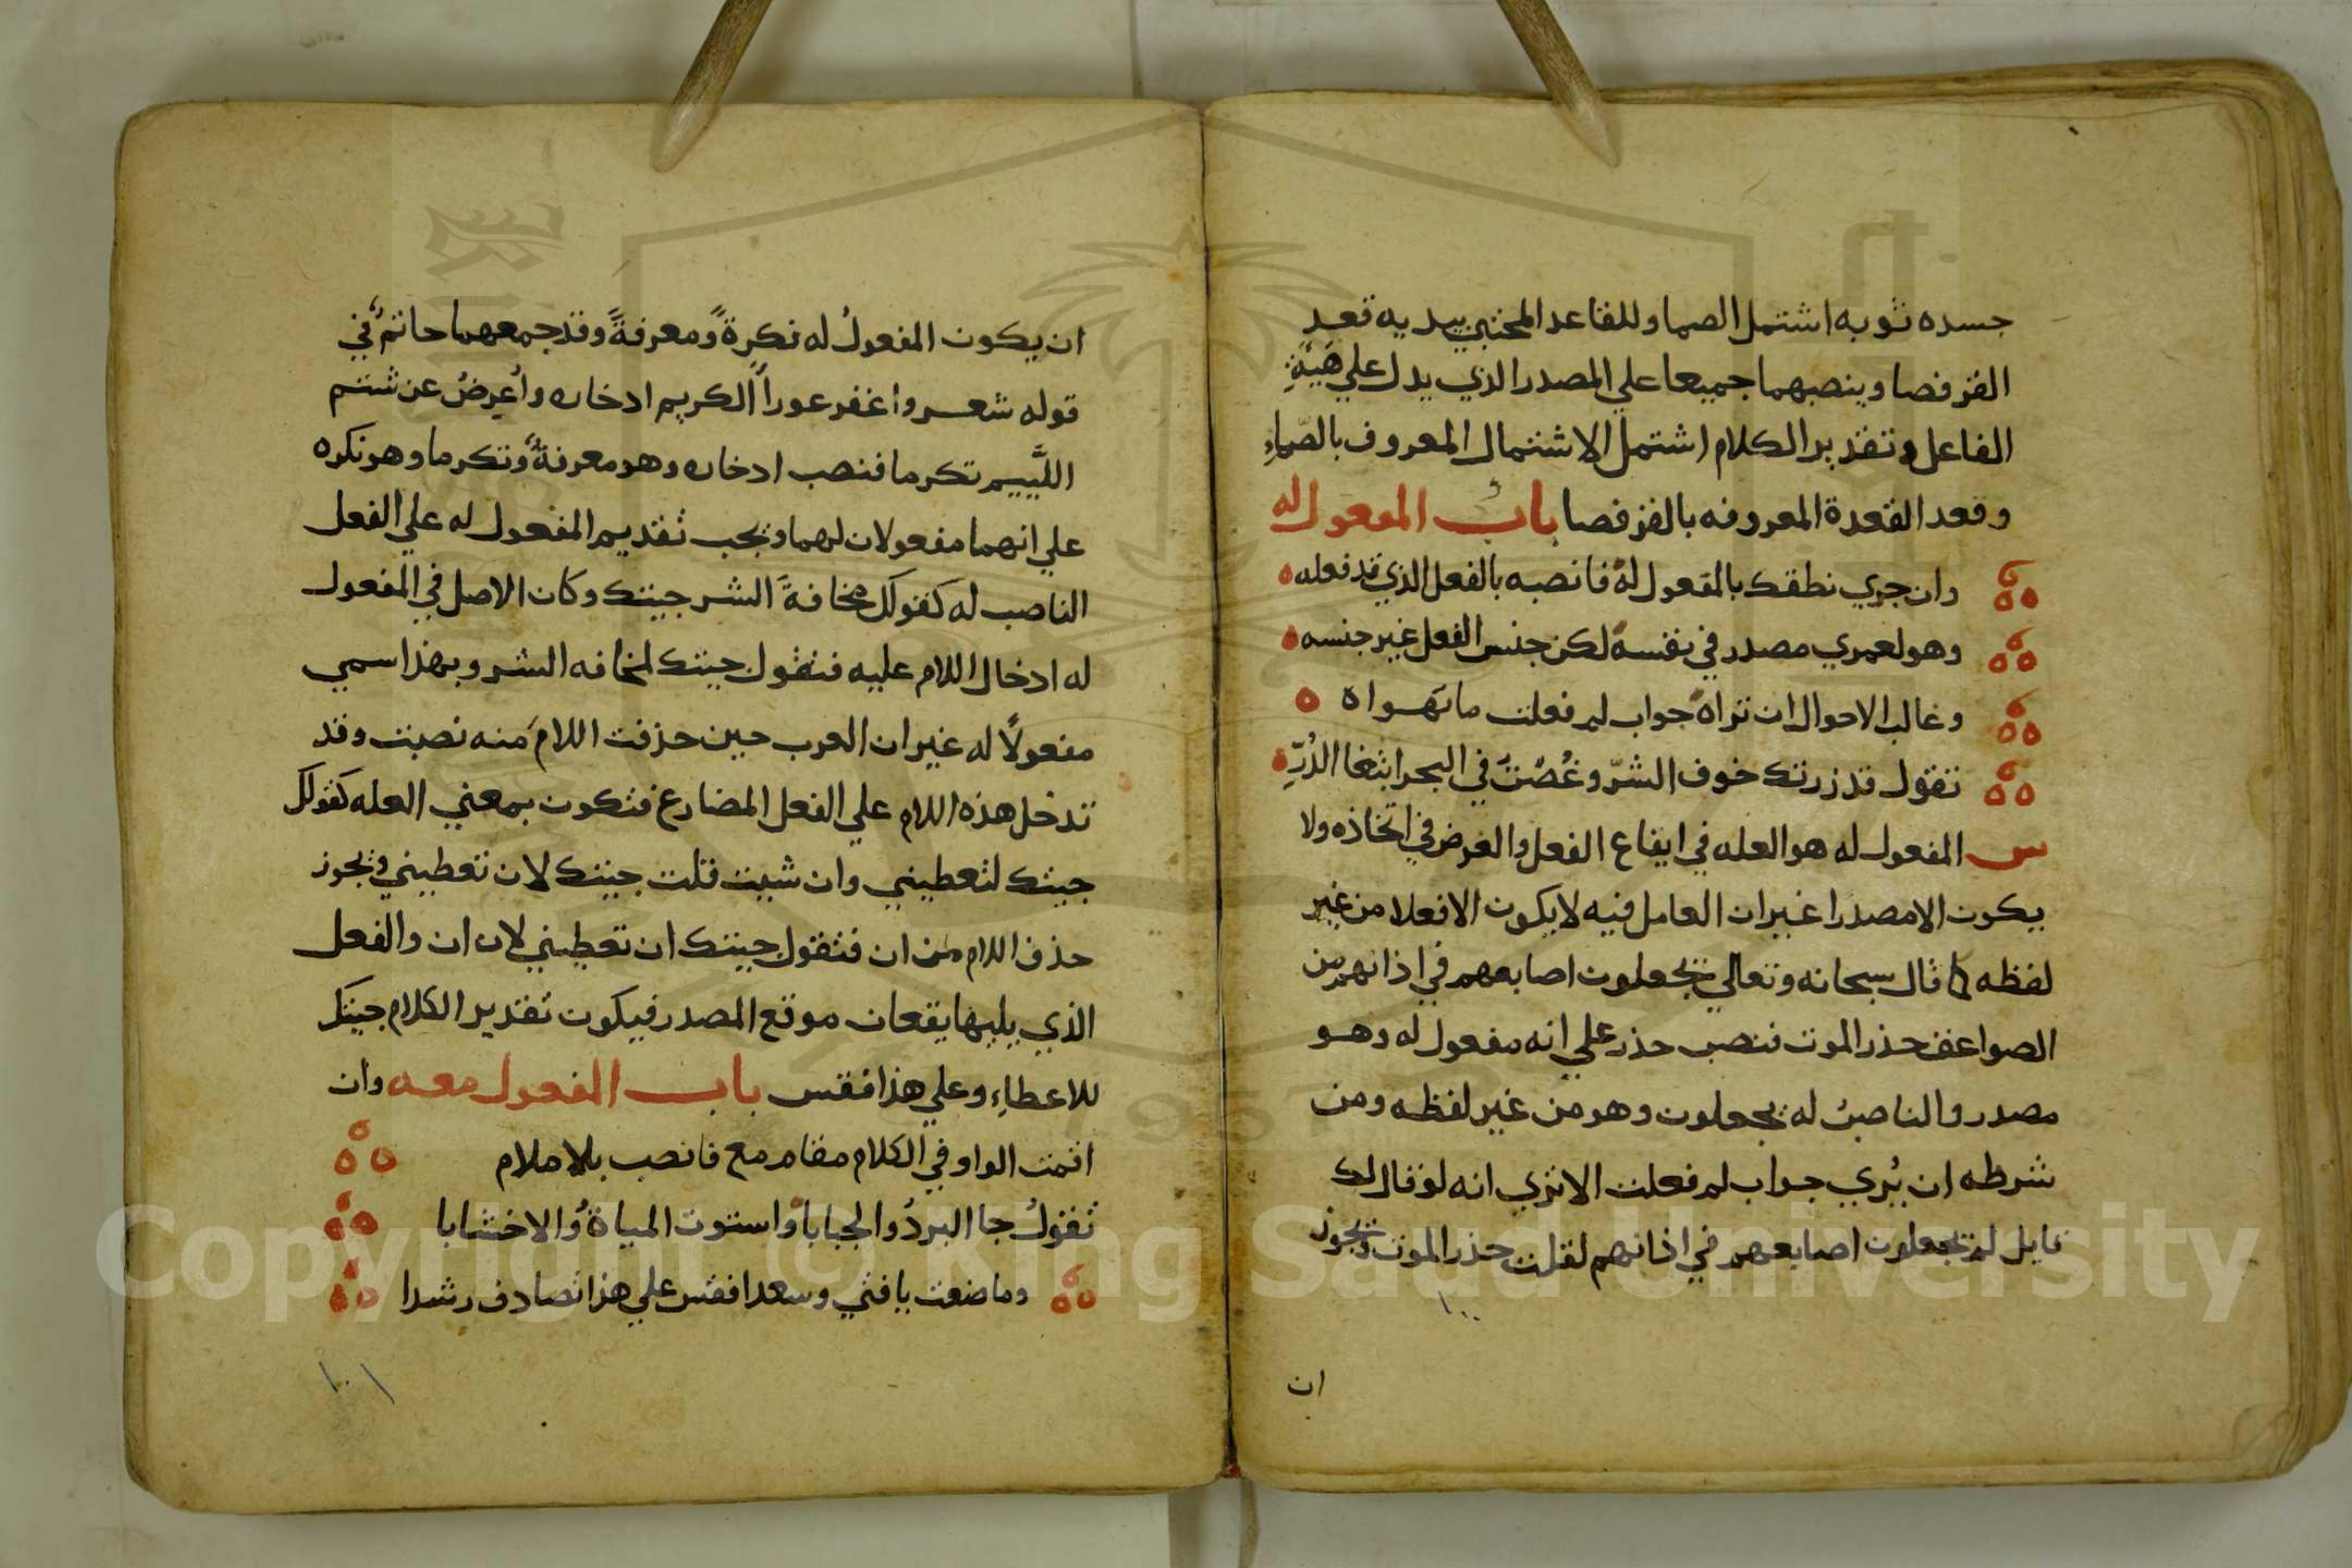 جسده ثوبه اشتمل الصما وللقاعد المحتبي بيديه قعد
القرفصا وينصبهما جميعا علي المصدر الذي يدل علي هَيْئةِ
الفاعل وتقدير الكلام اشتمل الاشتمال المعروف بالصّماءِ
وقعد القعدة المعروفه بالقرفصا باب المفعول له
وان جري نطقك بالمفعول له فانصبه بالفعل الذي قد فعله
وهو لعمري مصدر في نفسه لكن جنس الفعل غير جنسه
وغالب الاحوال ان تراه جواب لم فعلت ما تهواه
تقول قد زرتك خوف الشرّ وغُصْتُ في البحر ابتغا الدُرِّ
س المفعول له هو العله في ايقاع الفعل والغرض في اتخاذه ولا
يكون الا مصدرا غير ان العامل فيه لا يكون الا فعلا من غير
لفظه كما قال سبحانه وتعالي يجعلون اصابعهم في اذانهم من
الصواعق حذر الموت فنصب حذر علي انه مفعول له وهو
مصدر والناصبُ له يجعلون وهو من غير لفظه ومن
شرطه ان يُري جواب لم فعلت الا تري انه لو قال لك
قايل لم يجعلون اصابعهم في اذانهم لقلت حذر الموت ويجوز
١٠٠
ان
ان يكون المفعولُ له نكرةً ومعرفةً وقد جمعهما حاتمٌ في
قوله شعر واغفر عوراً الكريم ادخاره واُعرِضُ عن شتم
اللَّييم تكرما فنصب ادخاره وهو معرفةٌ وتكرما وهو نكره
علي انهما مفعولان لهما ويجب تقديم المفعول له علي الفعل
الناصب له كقولك مخافةَ الشر جيتك وكان الاصل في المفعول
له ادخال اللام عليه فتقول جيتك لمخافه الشر وبهذا سمي
مفعولًا له غير ان العرب حين حذفت اللامَ منه نصبت وقد
تدخل هذه اللام علي الفعل المضارع فتكون بمعني العله كقولك
جيتك لتعطيني وان شيت قلت جيتك لان تعطيني ويجوز
حذف اللام من ان فتقول جيتك ان تعطيني لان ان والفعل
الذي يليها يقعان موقع المصدر فيكون تقدير الكلام جيتك
للاعطاءِ وعلي هذا فقس باب المفعول معه وان
اقمت الواو في الكلام مقام مع فانصب بلا ملام
تقولُ جا البردُ والجبابا واستوت المياهُ والاخشابا
وما صنعت يا فتي وسعدا فقس علي هذا تصادف رشدا
١٠١